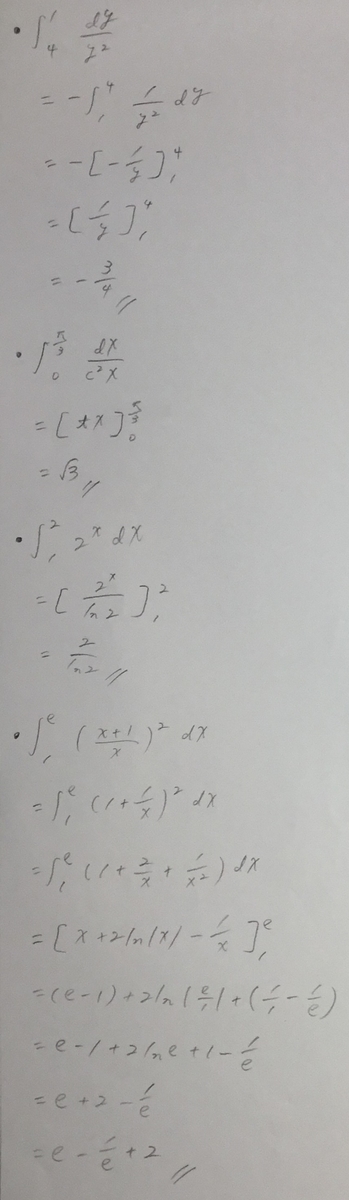 • ∫₄¹ dy/y²
= -∫₁⁴ 1/y² dy
= -[-1/y]₁⁴
= [1/y]₁⁴
= -3/4 //
• ∫₀^(π/3) dx/c²x
= [tx]₀^(π/3)
= √3 //
• ∫₁² 2ˣ dx
= [2ˣ/ln2]₁²
= 2/ln2 //
• ∫₁ᵉ ((x+1)/x)² dx
= ∫₁ᵉ (1+1/x)² dx
= ∫₁ᵉ (1+2/x+1/x²) dx
= [x+2ln|x|-1/x]₁ᵉ
= (e-1)+2ln|e/1|+(1/1-1/e)
= e-1+2lne+1-1/e
= e+2-1/e
= e-1/e+2 //